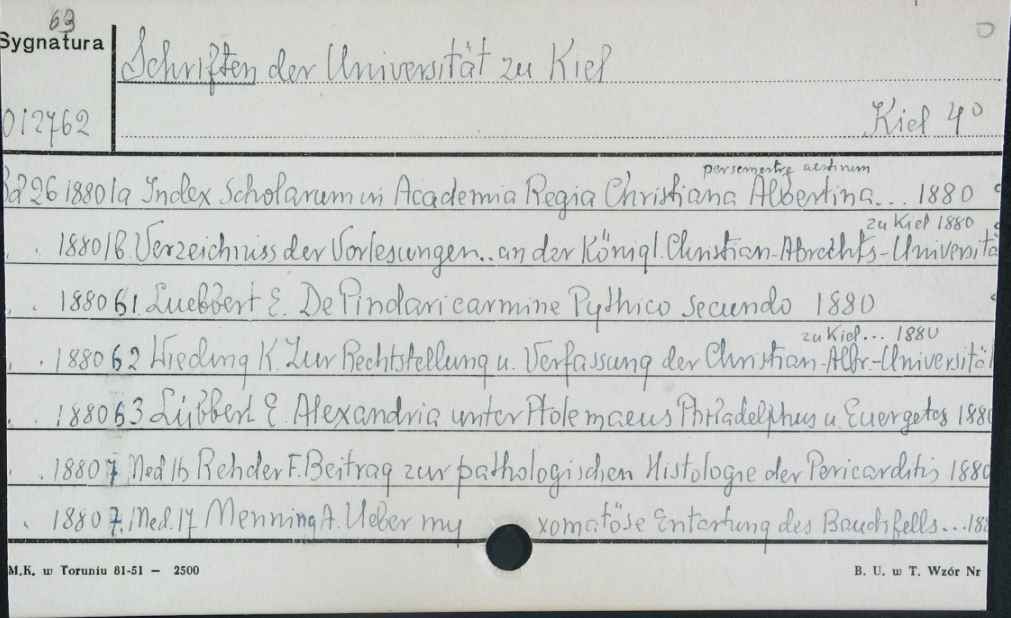 63
Sygnatura
Schriften der Universität zu Kiel
012762
Kiel 4°
per semestre aestivum
Bd 26 1880 1a Index Scholarum in Academia Regia Christiana Albertina... 1880
zu Kiel 1880
. 1880 1b Verzeichniss der Vorlesungen.. an der Königl. Christian-Abrechts-Universitä
. . 1880 61 Luebbert E. De Pindari carmine Pythico secundo 1880
zu Kiel... 1880
. . 1880 62 Wieding K. Zur Rechtstellung u. Verfassung der Christian-Albr.-Universität
. 1880 63 Lübbert E. Alexandria unter Ptolemaeus Philadelphus u. Euergetes 1880
. . 1880 7. Med 16 Rehder F. Beitrag zur pathologischen Histologie der Pericarditis 1880
. 1880 7. Med. 17 Menning A. Ueber myxomatöse Entartung des Bauchfells...188
M.K. w Toruniu 81-51 — 2500
B. U. w T. Wzór Nr